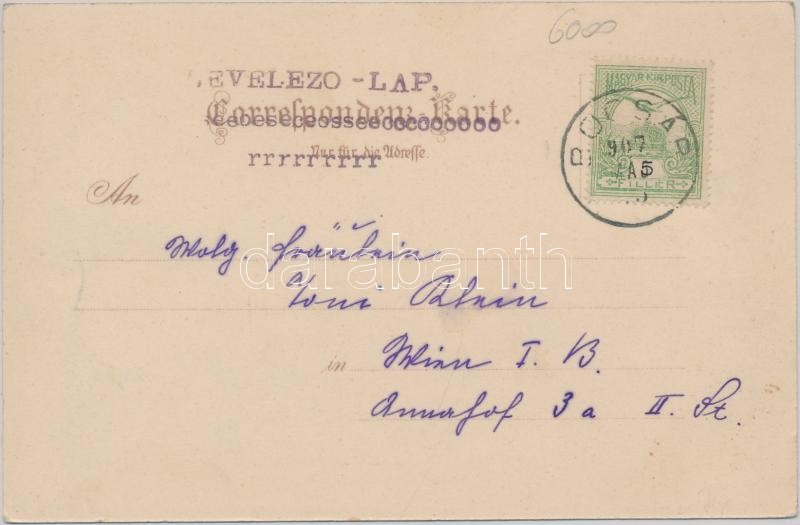 6000
MAGYAR KIR. POSTA
907
5
FILLÉR
EVELEZO -LAP.
Correspondenz-Karte.
Nur für die Adresse.
rrrrrrrrr
An
Wolg. Fräulein
Toni Klein
darabanth
in Wien I. B.
Annahof 3a II. St.